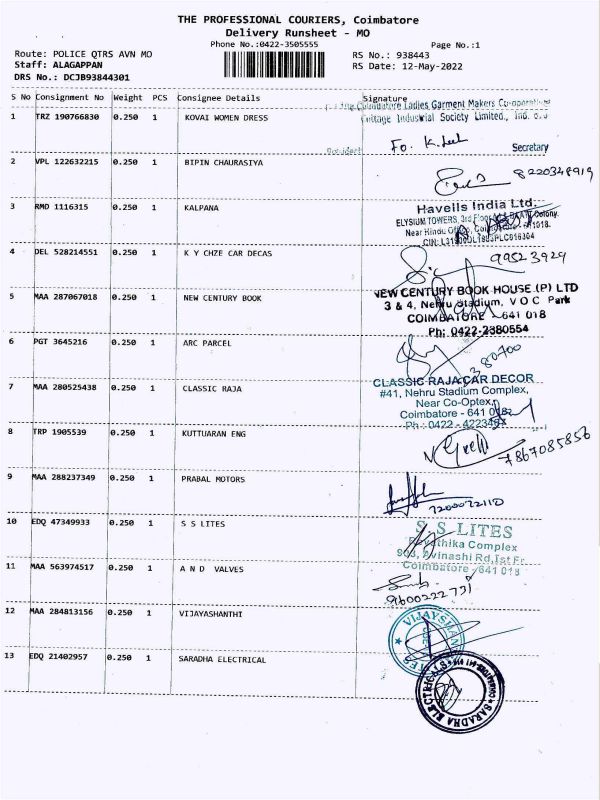 THE PROFESSIONAL COURIERS, Coimbatore
Delivery Runsheet - MO
Phone No.:0422-3505555 Page No.:1
Route: POLICE QTRS AVN MO RS No.: 938443
Staff: ALAGAPPAN RS Date: 12-May-2022
DRS No.: DCJB93844301
S No Consignment No Weight PCS Consignee Details Signature
Coimbatore Ladies Garment Makers Co-operative
1 TRZ 190766830 0.250 1 KOVAI WOMEN DRESS Cottage Industrial Society Limited., Ind.
Fo. K.
President Secretary
2 VPL 122632215 0.250 1 BIPIN CHAURASIYA
8220348919
3 RMD 1116315 0.250 1 KALPANA Havells India Ltd.
ELYSIUM TOWERS, 3rd Floor Colony.
Near Hindu Office, Coimbatore - 641018.
CIN:
4 DEL 528214551 0.250 1 K Y CHZE CAR DECAS 99523929
5 MAA 287067018 0.250 1 NEW CENTURY BOOK NEW CENTURY BOOK HOUSE (P) LTD
3 & 4, Nehru Stadium, V O C Park
COIMBATORE - 641 018
Ph: 0422-2380554
6 PGT 3645216 0.250 1 ARC PARCEL
380700
7 MAA 280525438 0.250 1 CLASSIC RAJA CLASSIC RAJA CAR DECOR
#41, Nehru Stadium Complex,
Near Co-Optex,
Coimbatore - 641 018
Ph : 0422 -
8 TRP 1905539 0.250 1 KUTTUARAN ENG
7867085856
9 MAA 288237349 0.250 1 PRABAL MOTORS
7200072110
10 EDQ 47349933 0.250 1 S S LITES S. S. LITES
Revathika Complex
903, Avinashi Rd, Ist Fr.
11 MAA 563974517 0.250 1 A N D VALVES Coimbatore - 641 018
9600222731
12 MAA 284813156 0.250 1 VIJAYASHANTHI
13 EDQ 21402957 0.250 1 SARADHA ELECTRICAL
SARADHA ELECTRICALS